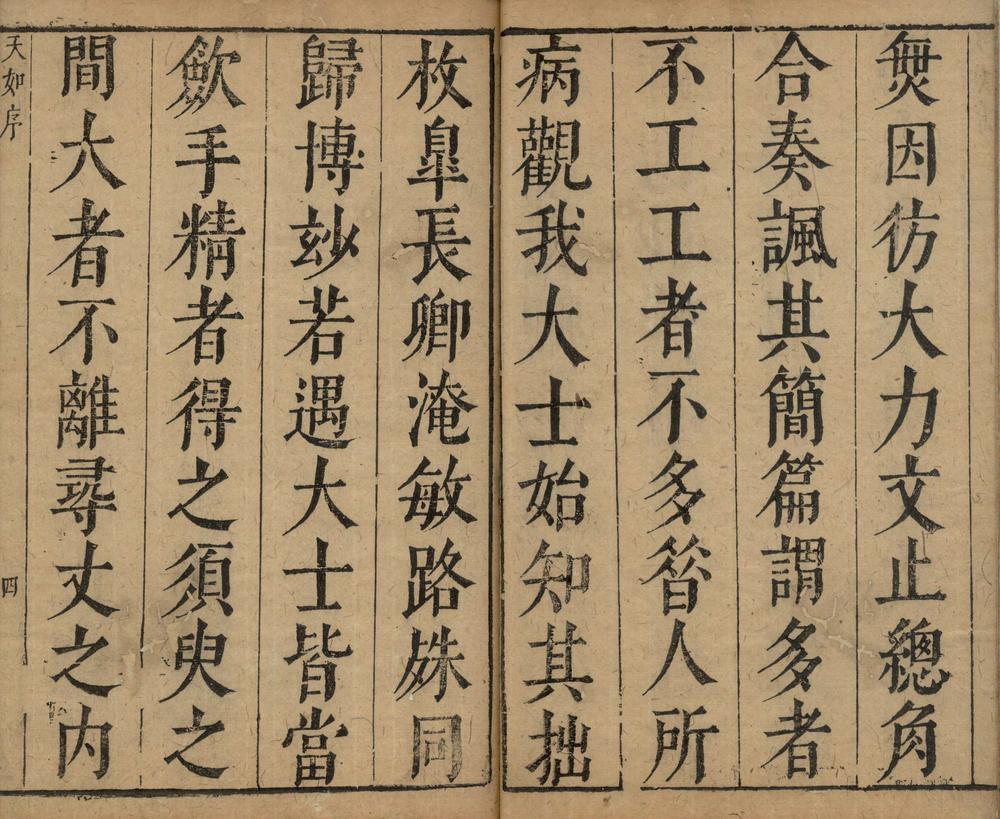 無因彷大力文止總角
合奏諷其簡篇謂多者
不工工者不多昝人所
病觀我大士始知其拙
枚臯長卿淹敏路姝同
歸博玅若遇大士皆當
歛手精者得之須臾之
間大者不離尋丈之內
天如序
四